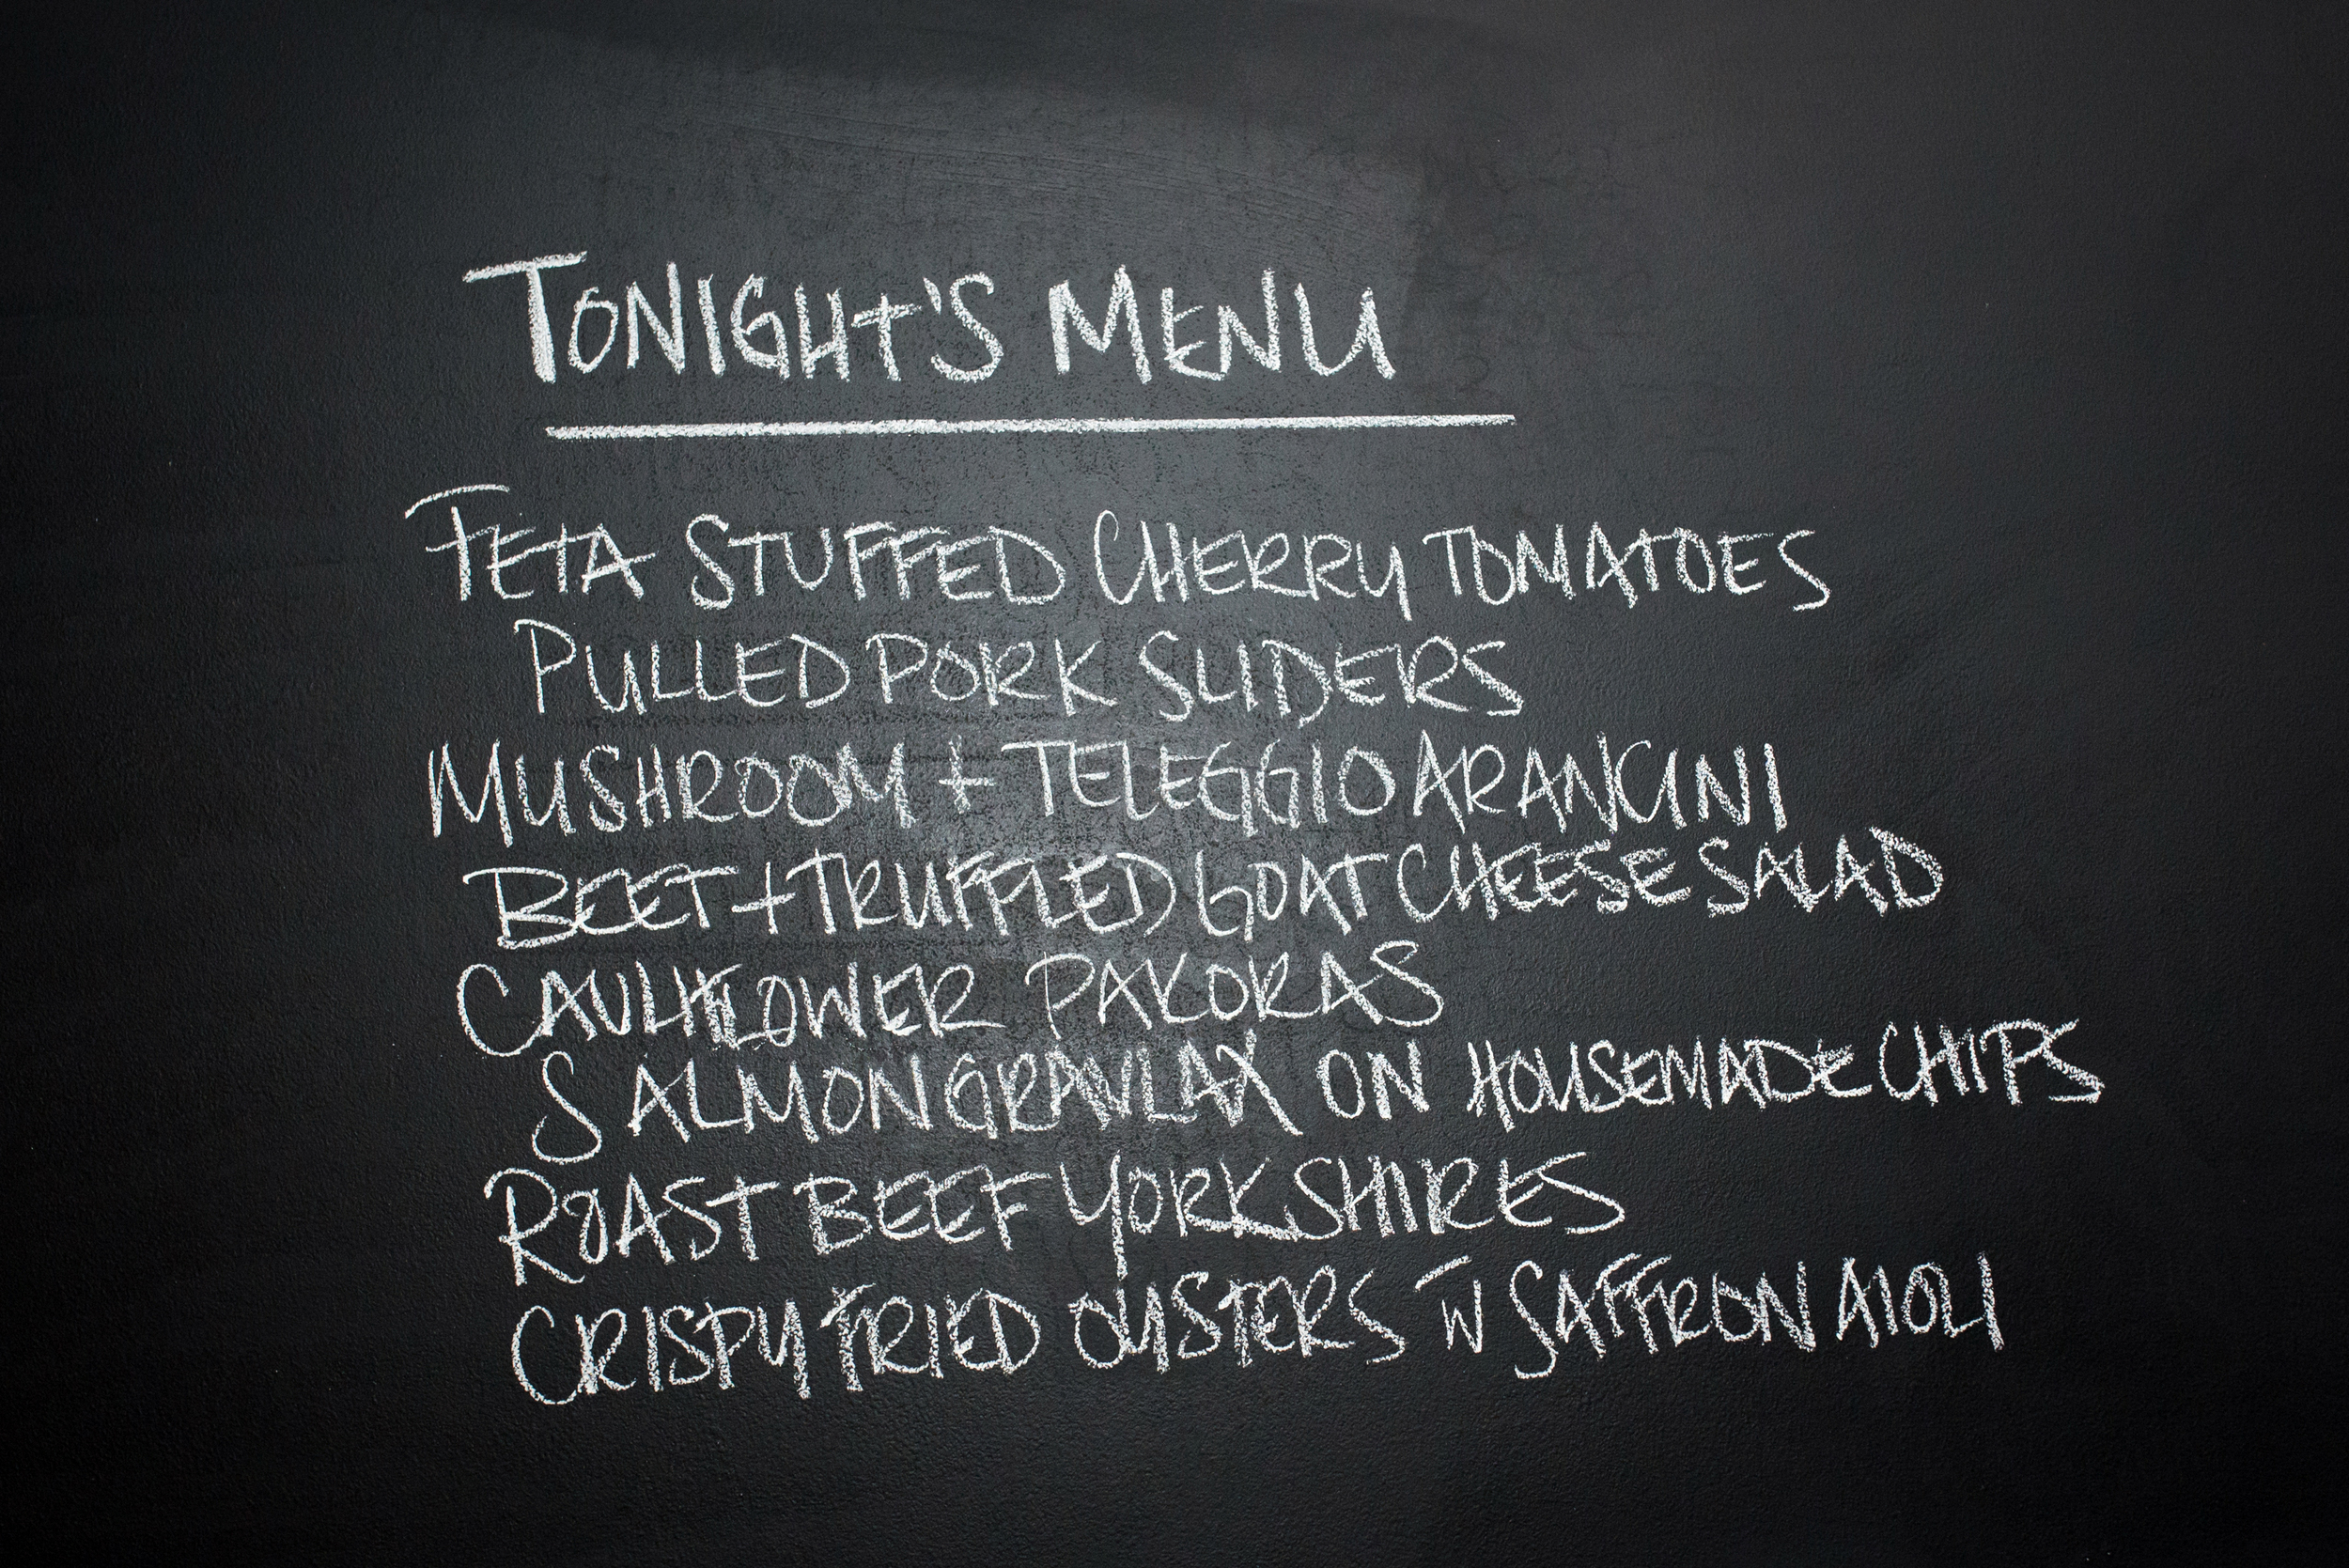 TONIGHT'S MENU
FETA STUFFED CHERRY TOMATOES
PULLED PORK SLIDERS
MUSHROOM + TELEGGIO ARANCINI
BEET + TRUFFLED GOAT CHEESE SALAD
CAULIFLOWER PAKORAS
SALMON GRAVLAX ON HOUSEMADE CHIPS
ROAST BEEF YORKSHIRES
CRISPY FRIED OYSTERS W SAFFRON AIOLI